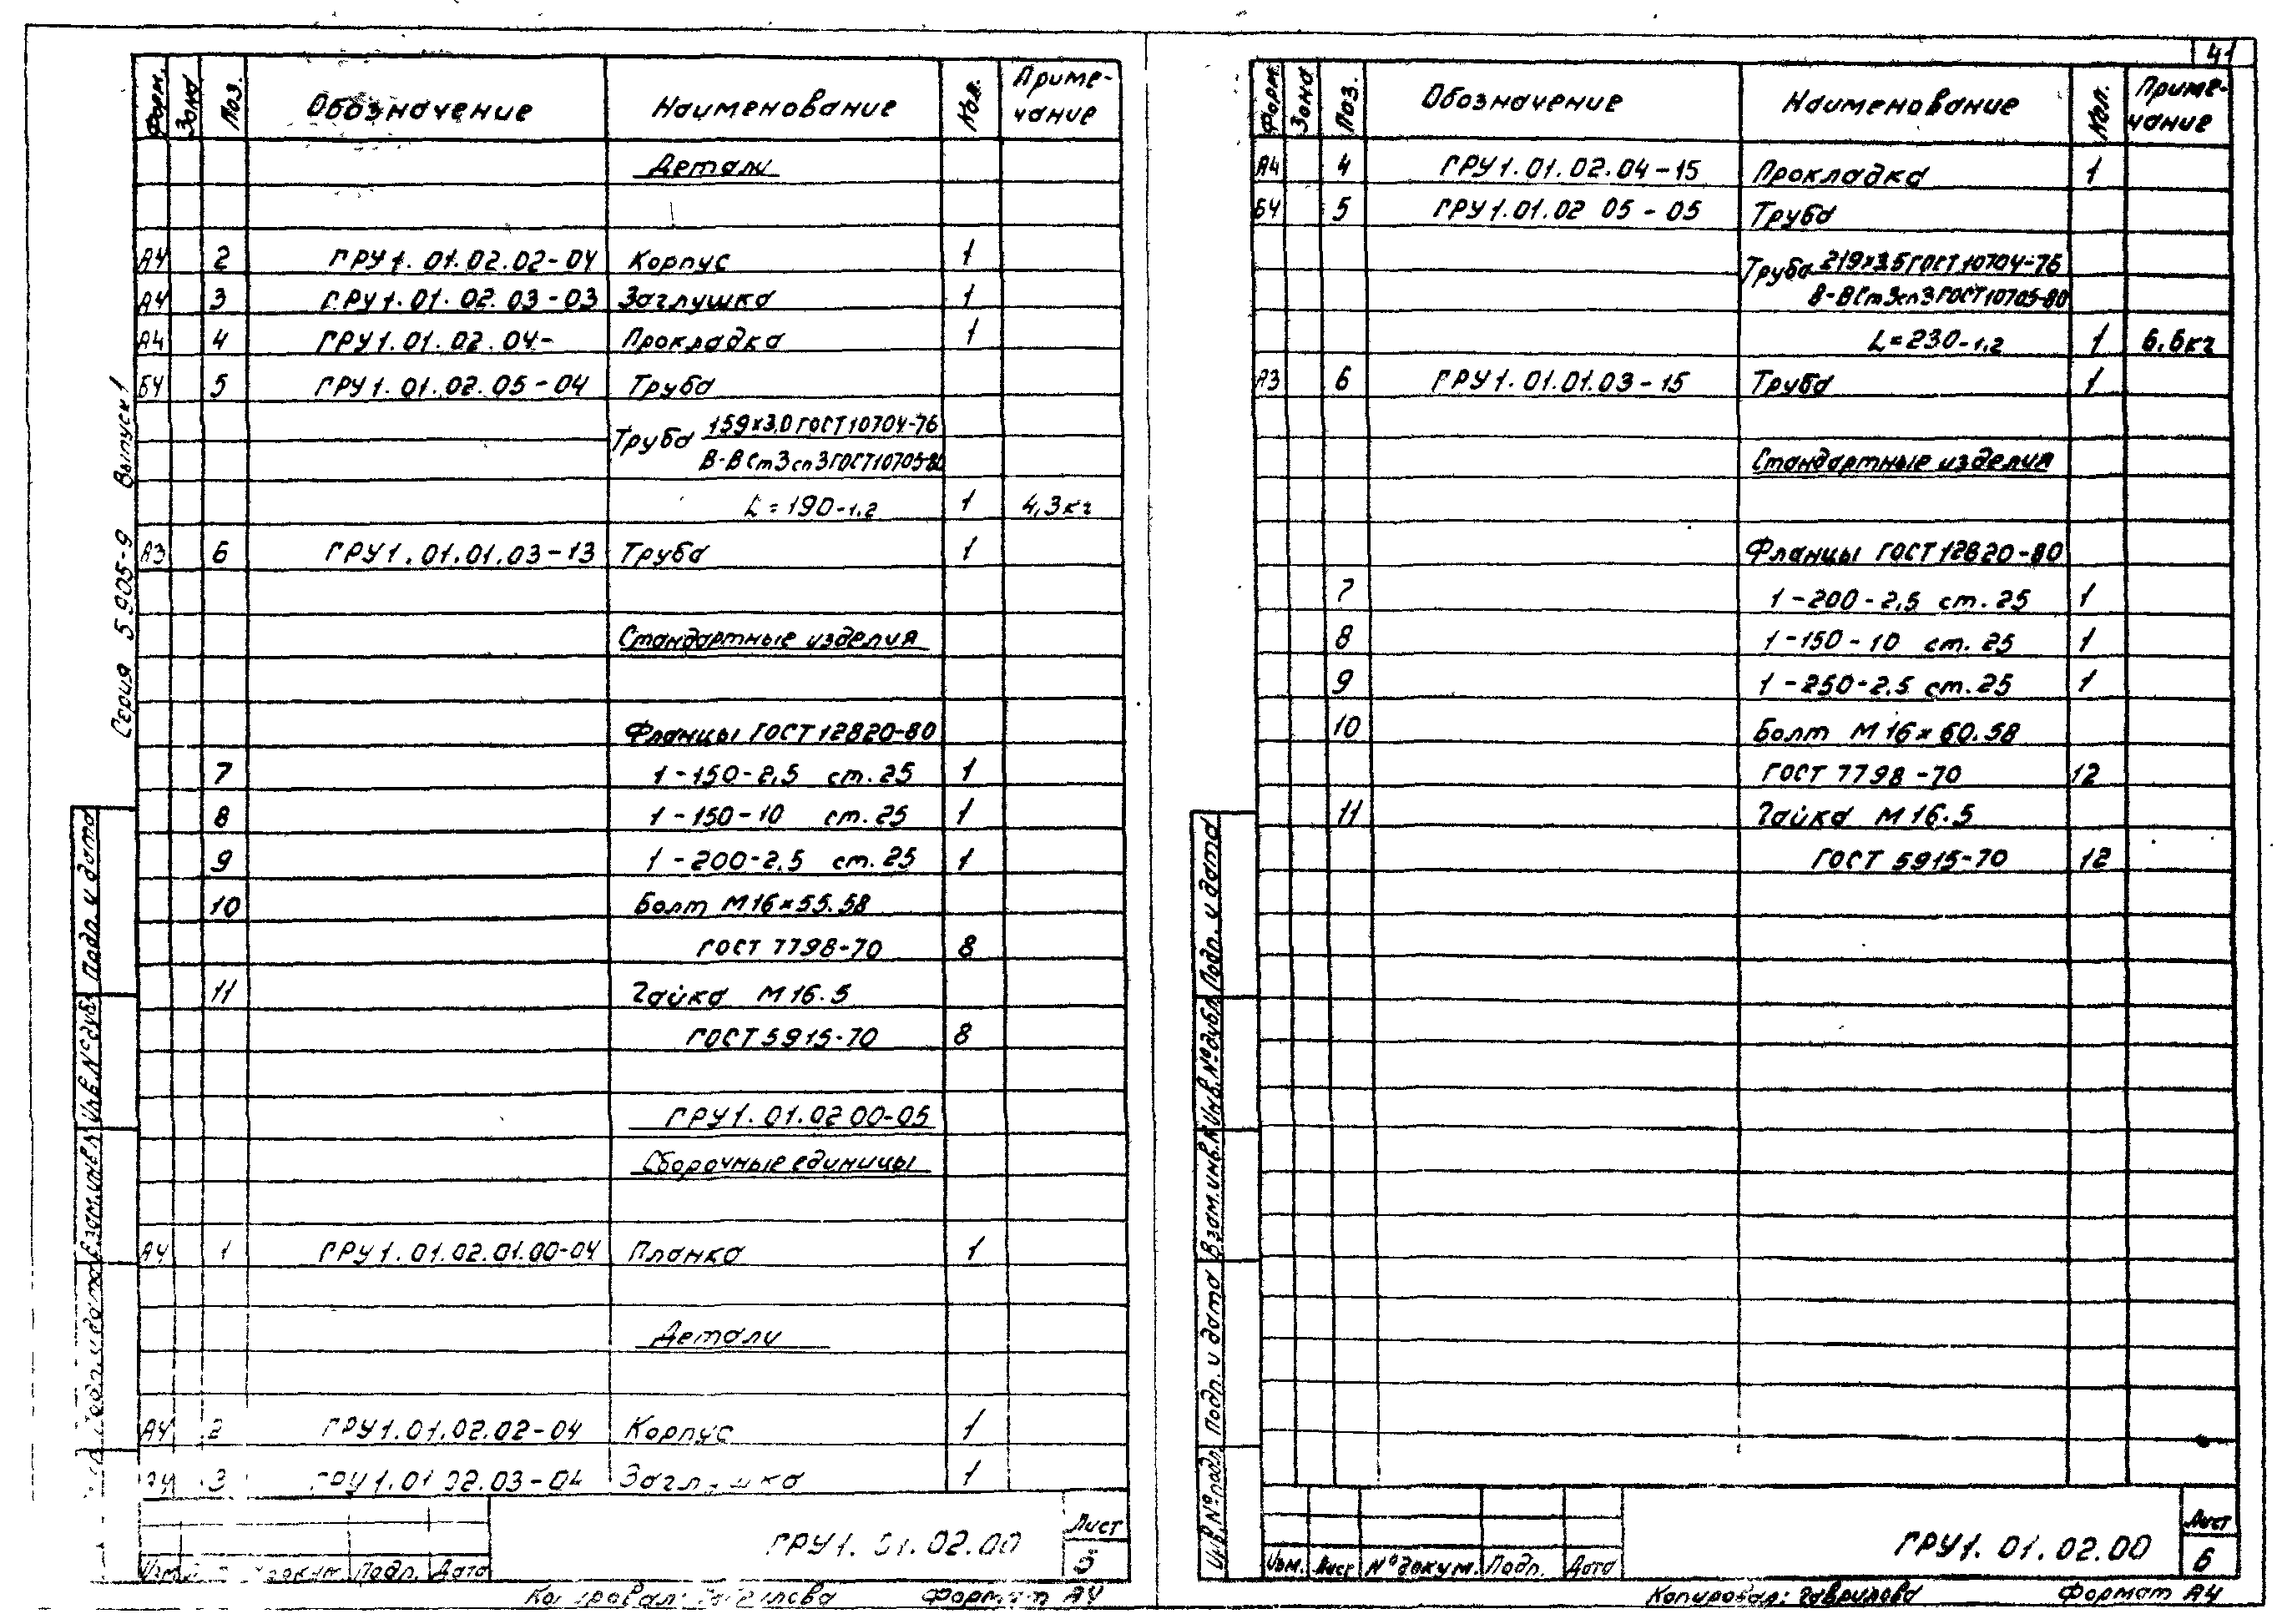 41
Серия 5 905-9 Выпуск 1
Форм. Зона Поз. Обозначение Наименование Кол. Приме-
чание
Детали
А4 2 ГРУ1.01.02.02-04 Корпус 1
А4 3 ГРУ1.01.02.03-03 Заглушка 1
А4 4 ГРУ1.01.02.04- Прокладка 1
БЧ 5 ГРУ1.01.02.05-04 Труба
Труба 159х3,0 ГОСТ 10704-76
В-В Ст3сп3 ГОСТ 10705-80
L=190-1,2 1 4,3кг
А3 6 ГРУ1.01.01.03-13 Труба 1
Стандартные изделия
Фланцы ГОСТ 12820-80
7 1-150-2,5 ст.25 1
8 1-150-10 ст.25 1
9 1-200-2,5 ст.25 1
10 Болт М16х55.58
ГОСТ 7798-70 8
11 Гайка М16.5
ГОСТ 5915-70 8
ГРУ1.01.02 00-05
Сборочные единицы
А4 1 ГРУ1.01.02.01.00-04 Планка 1
Детали
А4 2 ГРУ1.01.02.02-04 Корпус 1
3 ГРУ1.01 02.03-04 Заглушка 1
Подп. и дата
Инв.№ дубл.
Взам.инв.№
Подп. и дата
Подп. Дата
ГРУ1.01.02.00
Лист
5
Копировал: Формат А4
Форм. Зона Поз. Обозначение Наименование Кол. Приме-
чание
А4 4 ГРУ1.01.02.04-15 Прокладка 1
БЧ 5 ГРУ1.01.02 05-05 Труба
Труба 219х3,5 ГОСТ 10704-76
В-В Ст3сп3 ГОСТ 10705-80
L=230-1,2 1 6,6кг
А3 6 ГРУ1.01.01.03-15 Труба 1
Стандартные изделия
Фланцы ГОСТ 12820-80
7 1-200-2,5 ст.25 1
8 1-150-10 ст.25 1
9 1-250-2,5 ст.25 1
10 Болт М16х60.58
ГОСТ 7798-70 12
11 Гайка М16.5
ГОСТ 5915-70 12
Подп. и дата
Инв.№ дубл.
Взам.инв.№
Подп. и дата
Инв.№ подл.
Изм. Лист № докум. Подп. Дата
ГРУ1.01.02.00
Лист
6
Копировал: Гаврилова Формат А4